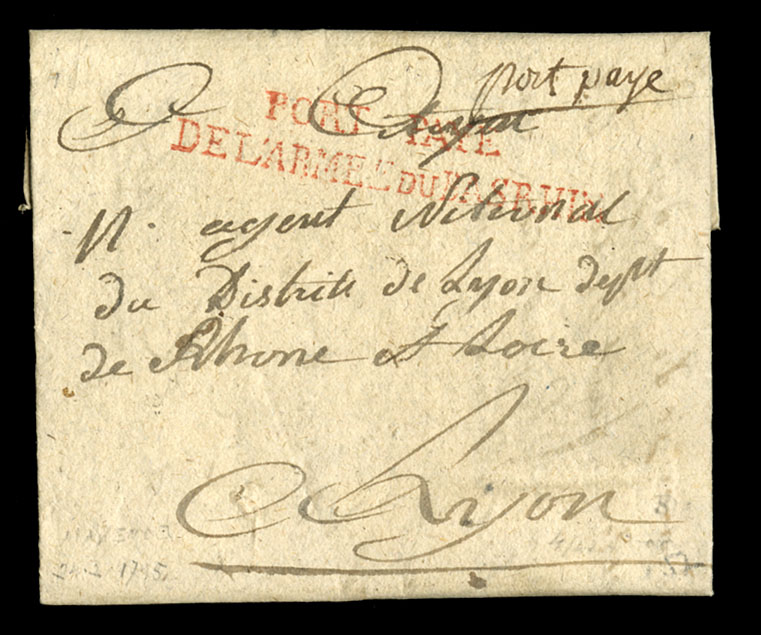 port paye
Au Citoyen
PORT PAYÉ
DE L'ARMÉE DU BAS RHIN
N. agent National
du District de Lyon dept
de Rhone et Loire
Lyon
24-2-1795